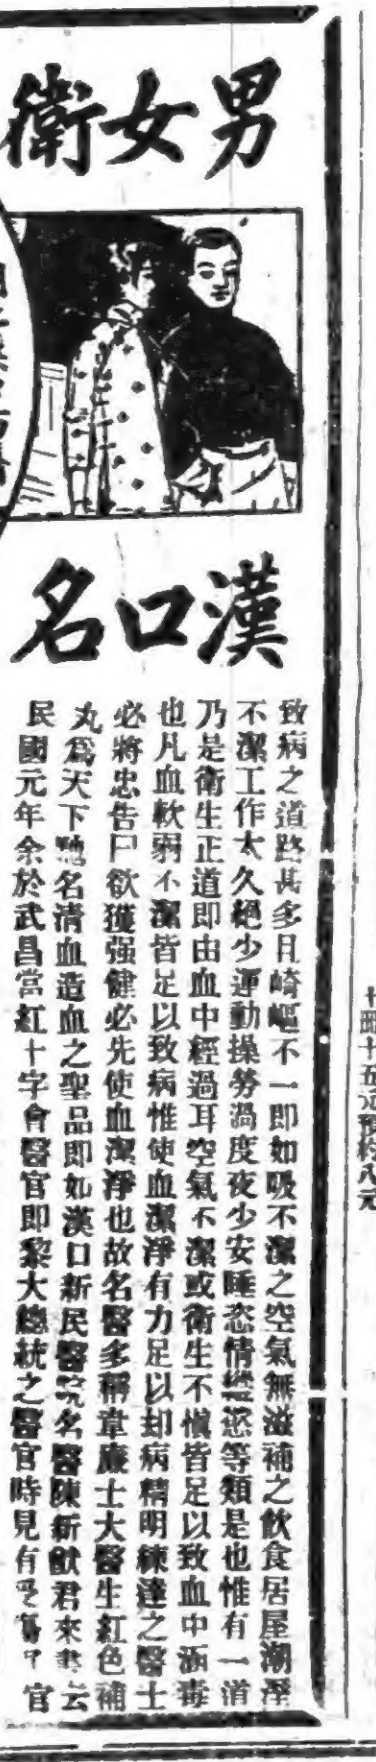 男女衛
漢口名
致病之道路甚多且崎嶇不一即如吸不潔之空氣無滋補之飲食居屋潮溼
不潔工作太久絕少運動操勞過度夜少安睡恣情縱慾等類是也惟有一道
乃是衛生正道即由血中經過耳空氣不潔或衛生不慎皆足以致血中涵毒
也凡血軟弱不潔皆足以致病惟使血潔淨有力足以却病精明練達之醫士
必將忠告尸欲獲强健必先使血潔淨也故名醫多稱韋廉士大醫生紅色補
丸爲天下馳名清血造血之聖品即如漢口新民醫院名醫陳新猷君來書云
民國元年余於武昌當紅十字會醫官即黎大總統之醫官時見有受傷官
十五元預約八元